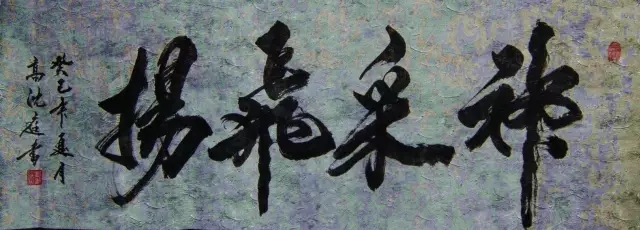 神采飛揚
癸巳年夏月
高沈庭书